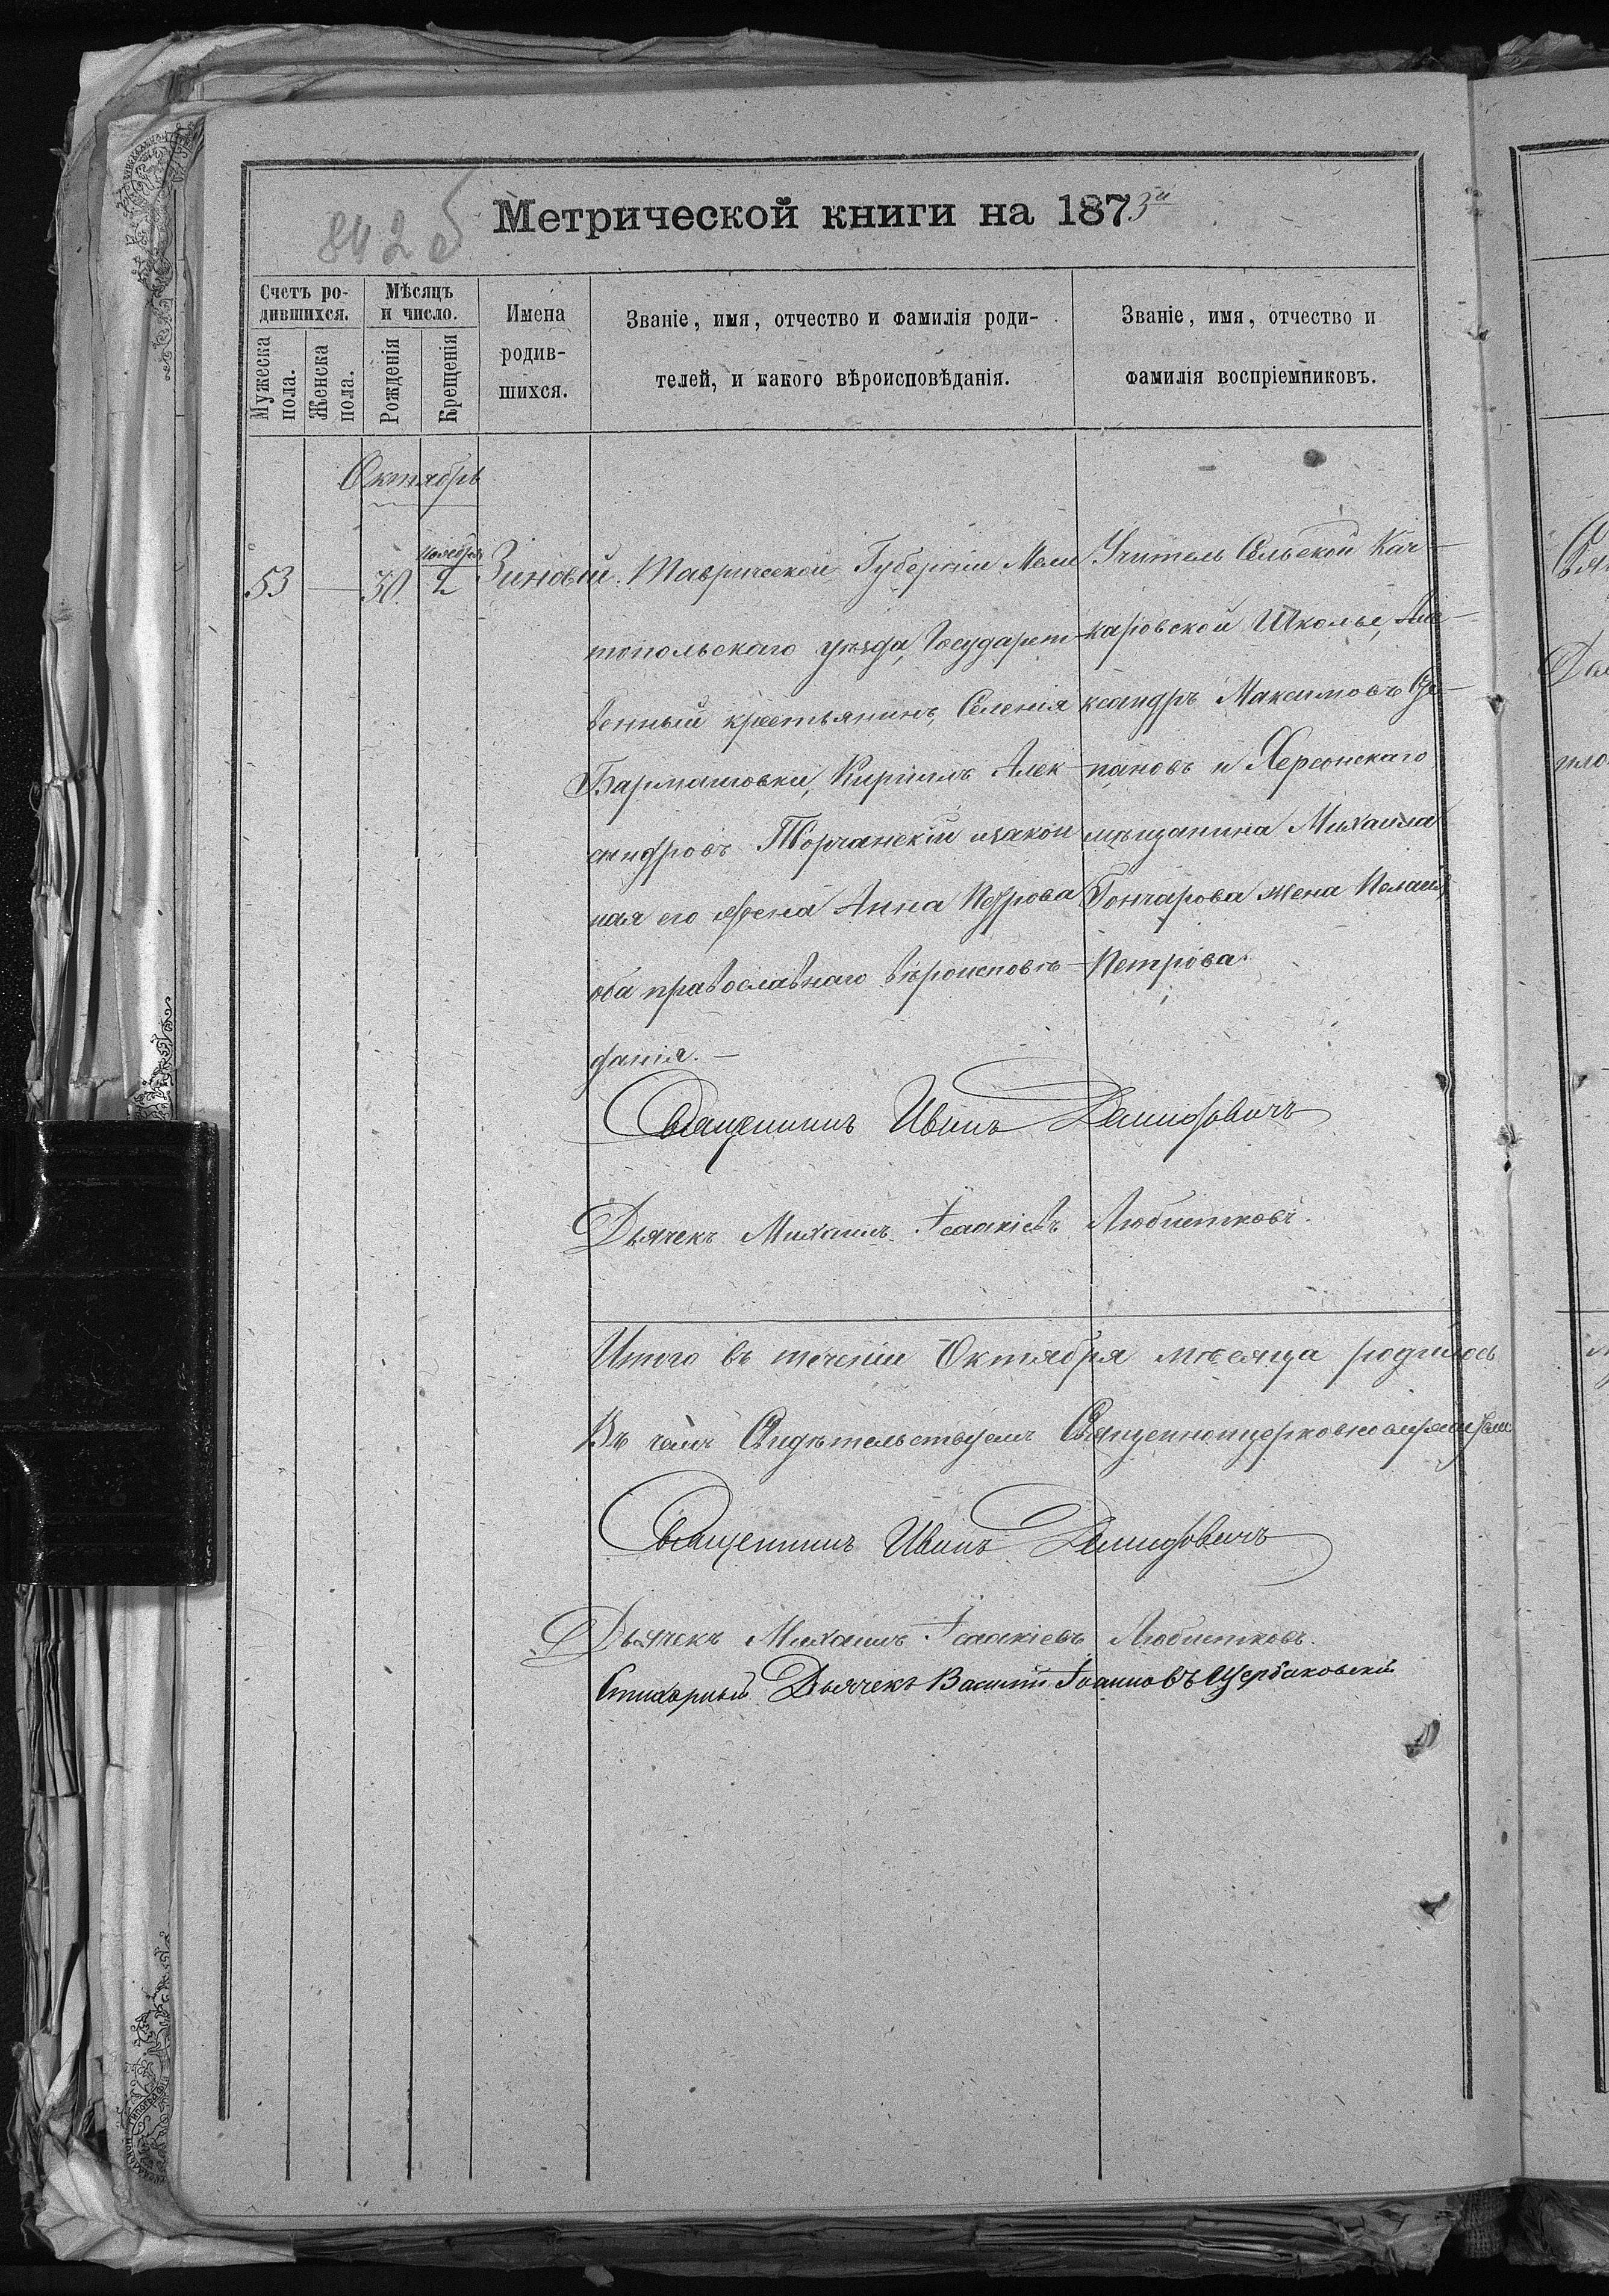 842 об
Метрической книги на 1873й
Счетъ ро-
дившихся.
Мужеска
пола.
Женска
пола.
Мѣсяцъ
и число.
Рожденія
Крещенія
Имена
родив-
шихся.
Званіе, имя, отчество и фамилія роди-
телей, и какого вѣроисповѣданія.
Званіе, имя, отчество и
фамилія воспріемниковъ.
Октябрь
53 — 30. Ноября 2
Зиновій.
Таврической Губерніи Мели
топольскаго уѣзда, Государст-
венный крестьянинъ, Селенія
Бармашовки, Кириллъ Алек-
сандровъ Торчанскій и закон
ная его жена Анна Петрова
оба православнаго вѣроисповѣ-
данія. —
Учитель Сельской Кач-
каровской Школы, Але-
ксандръ Максимовъ
пановъ и Херсонскаго
мѣщанина Михаила
Гончарова жена Пелагія
Петрова.
Священникъ Иванъ Демидовичъ
Дьячекъ Михаилъ Ісаакіевъ Любистковъ.
Итого въ теченіи Октября мѣсяца родилось
Въ чемъ Свидѣтельствуемъ
Священникъ Иванъ Демидовичъ
Дьячекъ Михаилъ Ісаакіевъ Любистковъ.
Стихарный Дьячекъ Василій Іоанновъ Щербаковскій